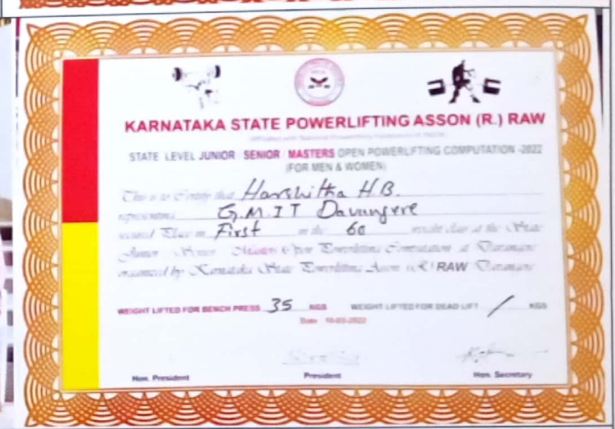 KARNATAKA STATE POWERLIFTING ASSON (R.) RAW
STATE LEVEL JUNIOR SENIOR MASTERS OPEN POWERLIFTING COMPUTATION -2022
(FOR MEN & WOMEN)
This is to Certify that Harshitha H.B.
representing G.M.I.T Davangere
secured Place in First in the 60 weight class at the State
Junior Senior Masters Open Powerlifting Computation at Davangere
organized by Karnataka State Powerlifting Asson (R) RAW Davangere
WEIGHT LIFTED FOR BENCH PRESS 35 KGS WEIGHT LIFTED FOR DEAD LIFT / KGS
Date 
Hon. President President Hon. Secretary